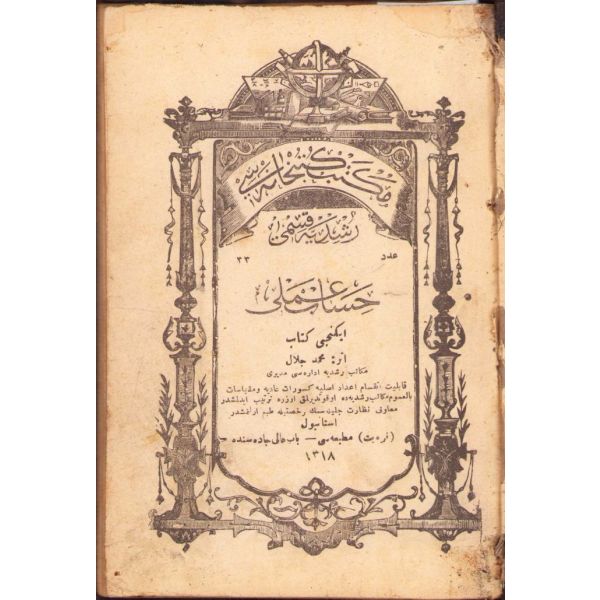 مكتب كتبخانه سی
رشدیه قسمی
عدد ٣٣
حساب عملی
ایكنجی كتاب
اثر: محمد جلال
مكاتب رشدیه اداره سی مدیری
قابلیت انقسام اعداد اصلیه كسورات عادیه و مقیاسات
بالعموم مكاتب رشدیه ده اوقوندیرلق اوزره ترتیب ایدلشدر
معارف نظارت جلیله سنك رخصتیله طبع اولنمشدر
استانبول
مطبعه سی — باب عالی جاده سنده
١٣١٨